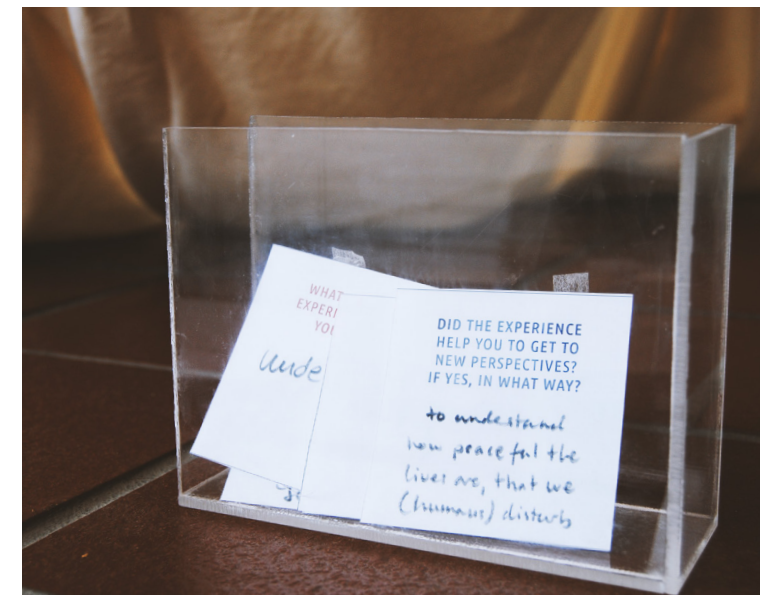 WHAT
EXPERI
YOU
Unde
DID THE EXPERIENCE
HELP YOU TO GET TO
NEW PERSPECTIVES?
IF YES, IN WHAT WAY?
to understand
how peaceful the
lives are, that we
(humans) disturb